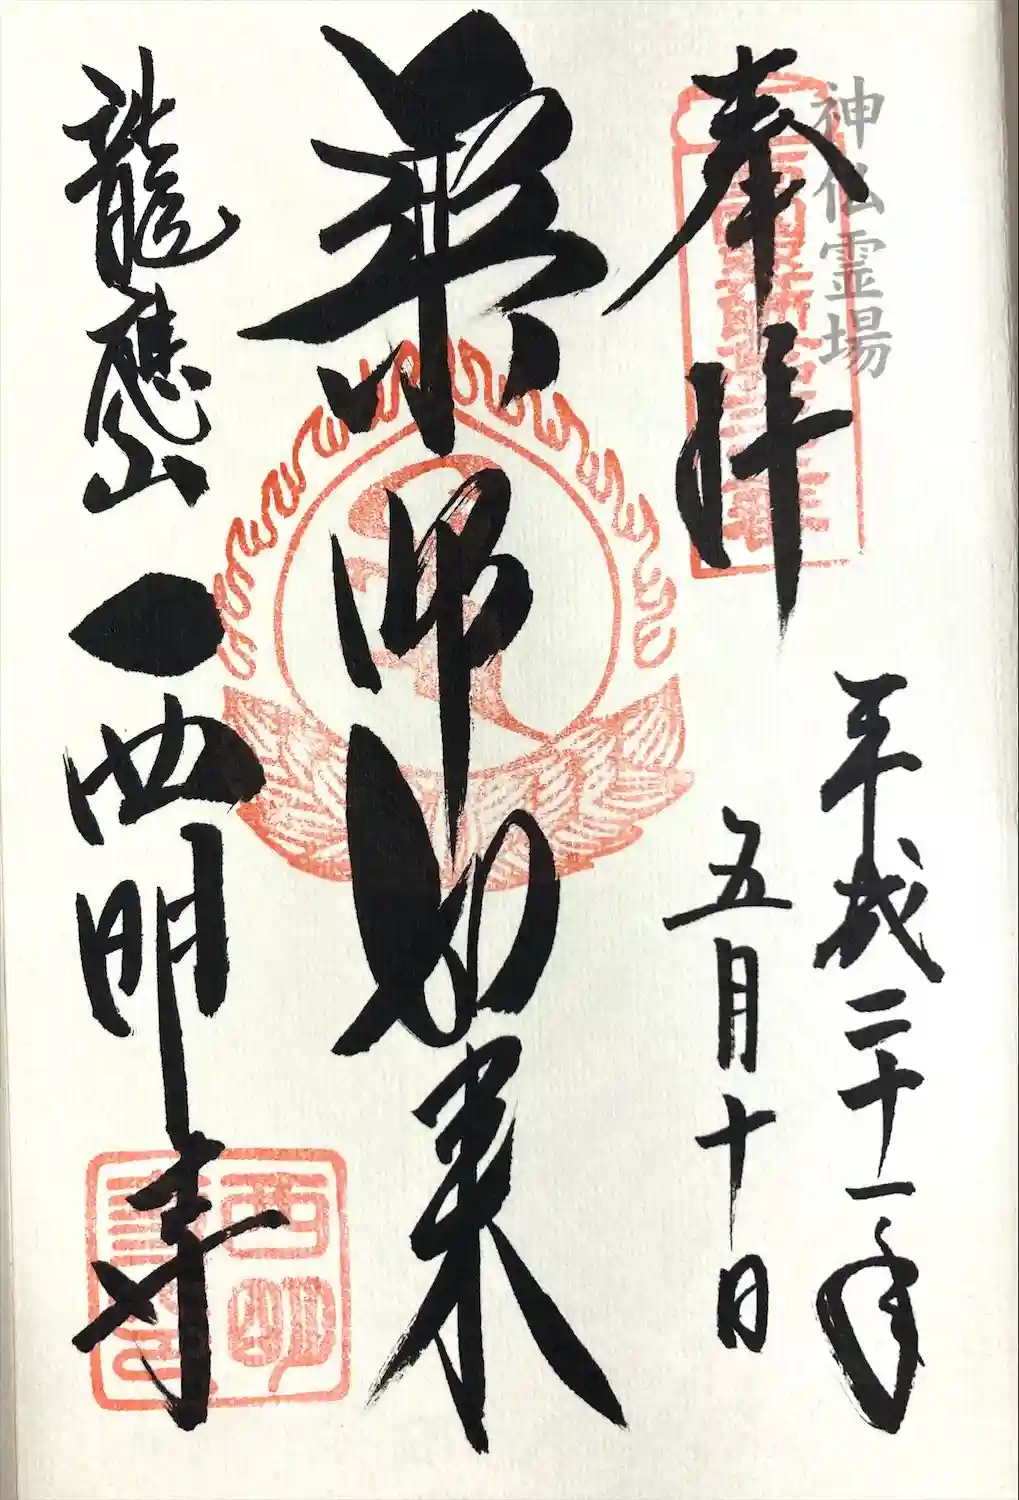 神仏霊場
奉拝
平成二十一年
五月十日
薬師如来
龍應山 西明寺